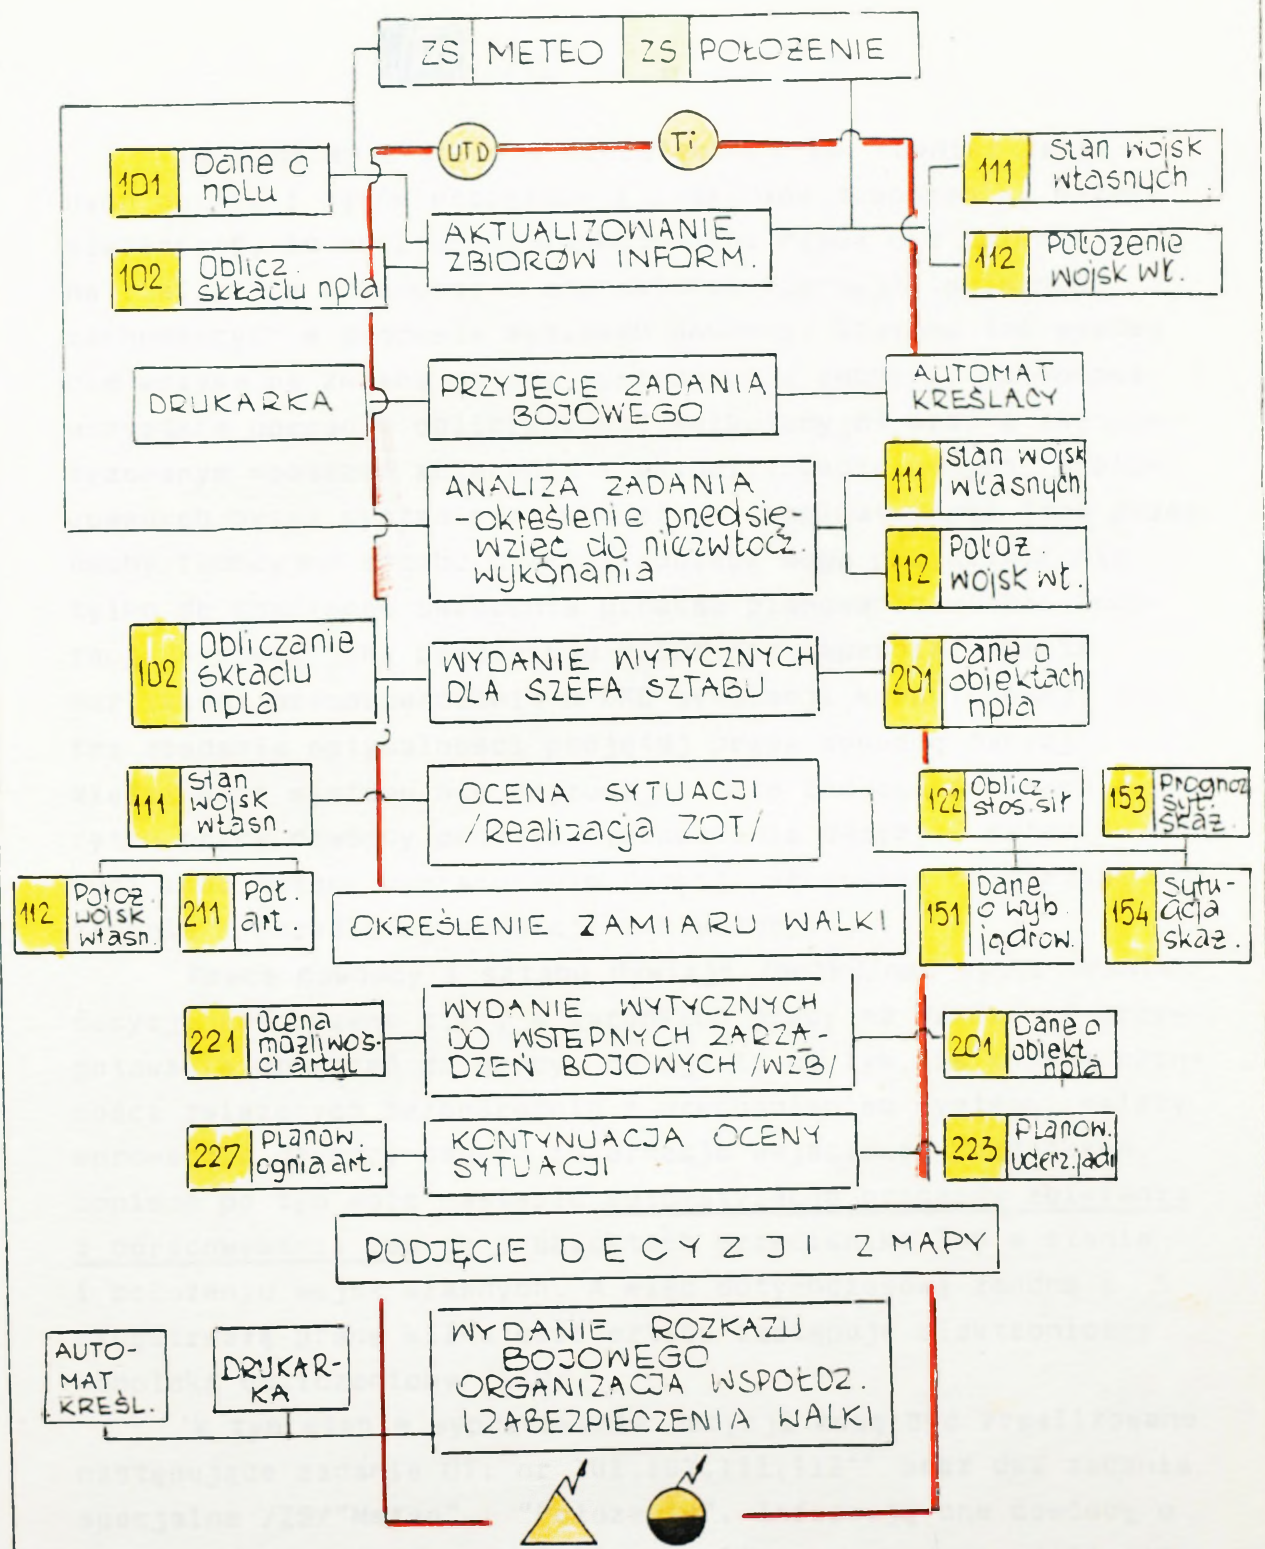 ZS METEO ZS POŁOŻENIE
UTD
Ti
101 Dane o
nplu
111 Stan wojsk
własnych
AKTUALIZOWANIE
ZBIORÓW INFORM.
102 Oblicz.
składu npla
112 Położenie
wojsk wł.
DRUKARKA
PRZYJĘCIE ZADANIA
BOJOWEGO
AUTOMAT
KREŚLĄCY
ANALIZA ZADANIA
-określenie przedsię-
wzięć do niezwłocz.
wykonania
111 Stan wojsk
własnych
112 Położ.
wojsk wł.
102 Obliczanie
składu
npla
WYDANIE WYTYCZNYCH
DLA SZEFA SZTABU
201 Dane o
obiektach
npla
111 Stan
wojsk
własn.
OCENA SYTUACJI
/Realizacja ZOT/
122 Oblicz
stos. sił
153 Prognoz
syt.
skaż.
112 Położ.
wojsk
własn.
211 Poł.
art.
OKREŚLENIE ZAMIARU WALKI
151 Dane
o wyb.
jądrow.
154 Sytu-
acja
skaż.
221 Ocena
możliwoś-
ci artyl
WYDANIE WYTYCZNYCH
DO WSTĘPNYCH ZARZĄ-
DZEŃ BOJOWYCH /WZB/
201 Dane o
obiekt.
npla
227 Planow.
ognia art.
KONTYNUACJA OCENY
SYTUACJI
223 Planow.
uderz. jądr
PODJĘCIE DECYZJI Z MAPY
AUTO-
MAT.
KREŚL.
DRUKAR-
KA
WYDANIE ROZKAZU
BOJOWEGO
ORGANIZACJA WSPÓŁDZ.
I ZABEZPIECZENIA WALKI